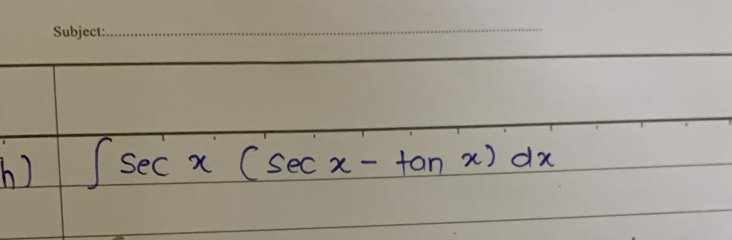 Subject:
h) ∫ sec x (sec x - tan x) dx